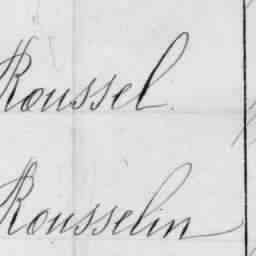 Roussel.
Rousselin